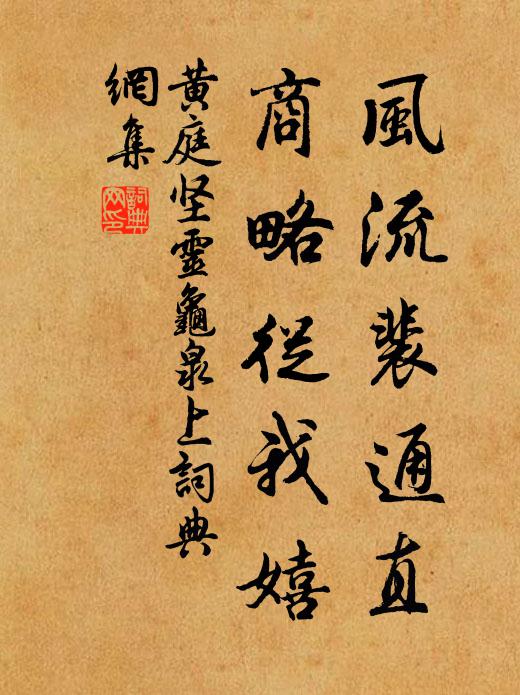 風流裴通直
商略從我嬉
黃庭坚靈龜泉上詞典
網集
詞典
网印